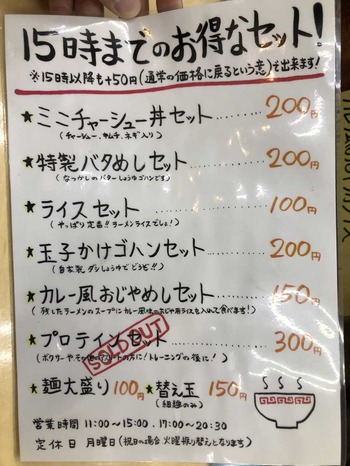 15時までのお得なセット!
※15時以降も+50円(通常の価格に戻るという意)で出来ます!
★ミニチャーシュー丼セット……200円
(チャーシュー、キムチ、ネギ入り)
★特製バタめしセット……200円
(なつかしのバターしょうゆゴハンです)
★ライスセット……100円
(やっぱり定番!!ラーメンライスでしょ!)
★玉子かけゴハンセット……200円
(自家製ダシしょうゆでどうぞ!!)
★カレー風おじやめしセット……150円
(残したラーメンのスープにカレー風味のおじや用ライスを入れて食べます!)
★プロテインセット……300円
SOLD OUT
(ボクサーやその他アスリートの方に!トレーニングの後に!)
★麺大盛り100円 ★替え玉150円
(細麺のみ)
営業時間 11:00~15:00、17:00~20:30
定休日 月曜日(祝日の場合火曜振り替えとなります)